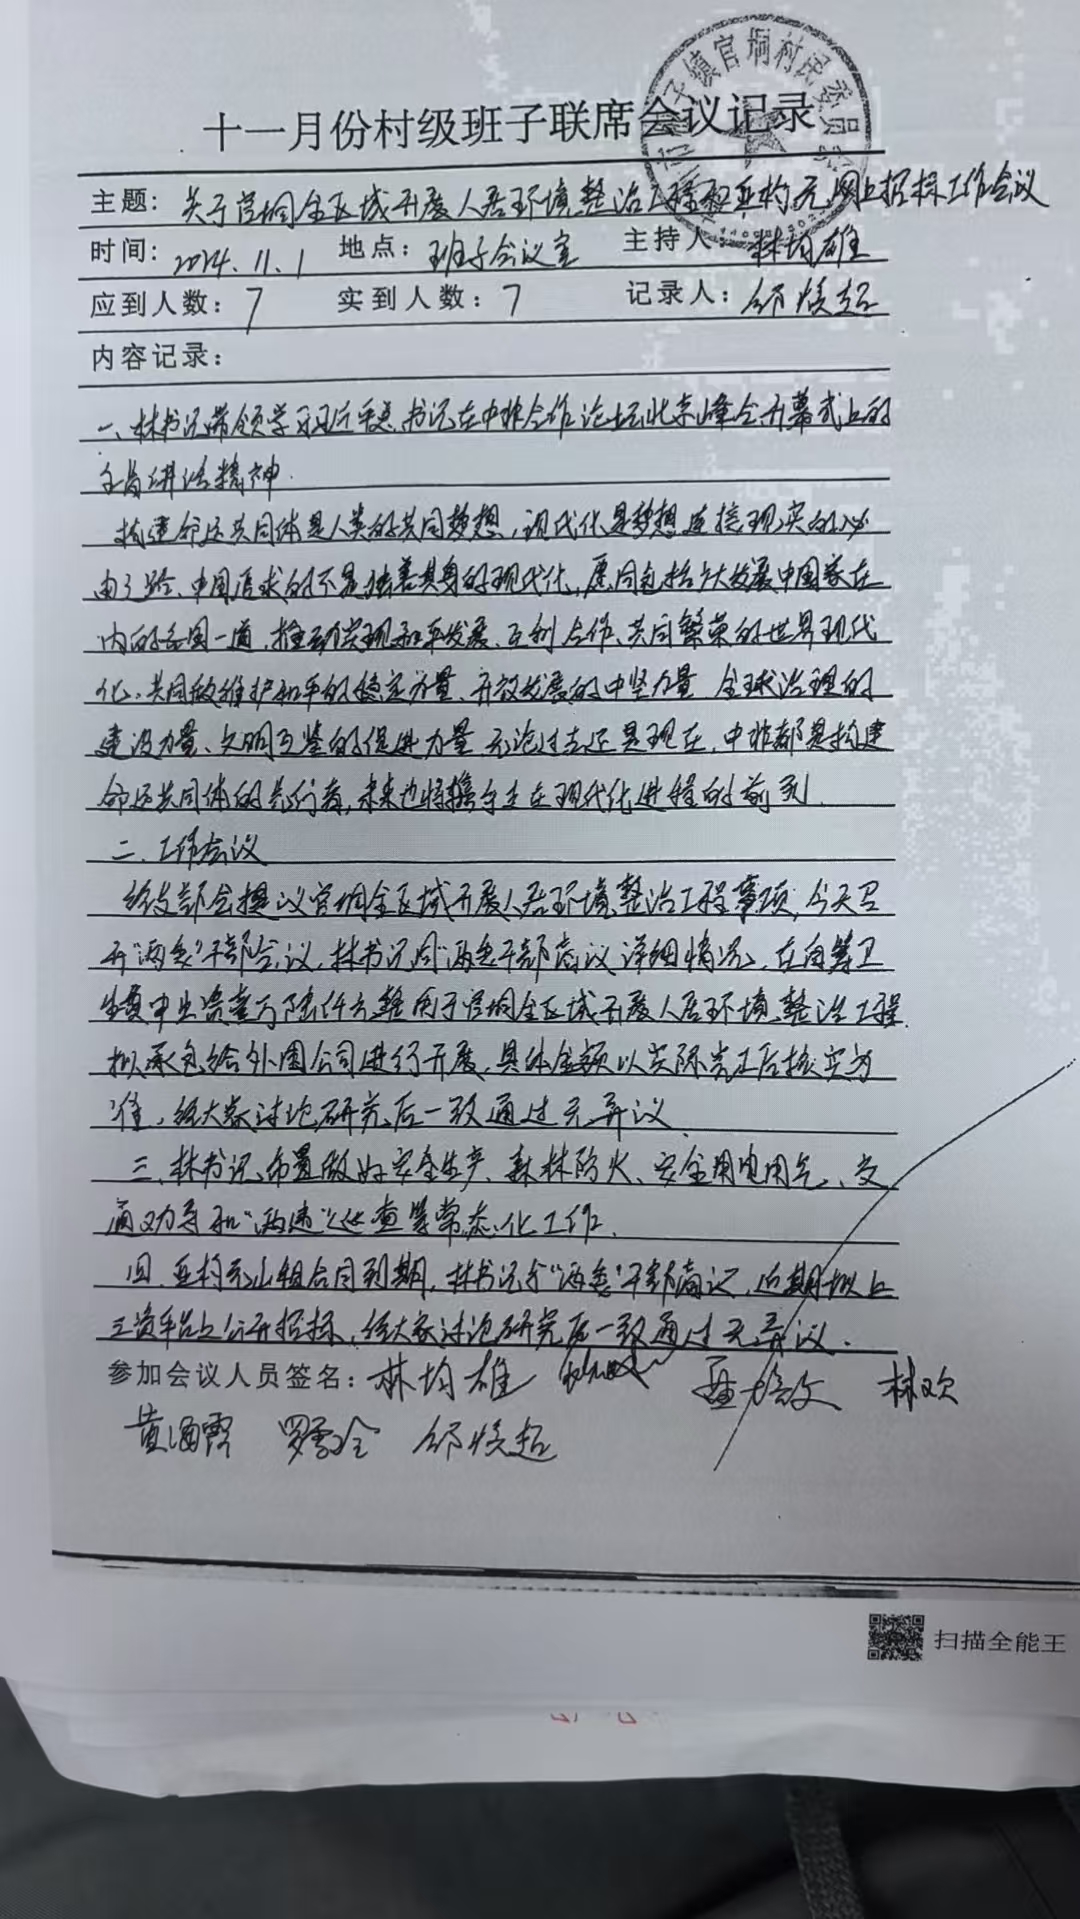 镇官垌村民委员会
十一月份村级班子联席会议记录
主题：关于官垌全区域开展人居环境整治工程和亚杓元网上招标工作会议
时间：2024.11.1 地点：班子会议室 主持人：林均雄
应到人数：7 实到人数：7 记录人：邱焕超
内容记录：
一、林书记带领学习习近平总书记在中非合作论坛北京峰会开幕式上的
主旨讲话精神.
构建命运共同体是人类的共同梦想，现代化是梦想连接现实的必
由之路、中国追求的不是独善其身的现代化，愿同包括广大发展中国家在
内的各国一道，推动实现和平发展、互利合作、共同繁荣的世界现代
化、共同做维护和平的稳定力量、开放发展的中坚力量 全球治理的
建设力量、文明互鉴的促进力量 无论过去还是现在，中非都是构建
命运共同体的先行者，未来也将携手走在现代化进程的前列.
二、工作会议
经支部会提议官垌全区域开展人居环境整治工程事项，今天召
开"两委"干部会议，林书记同"两委"干部商议详细情况，在自筹卫
生费中出资壹万陆仟元整用于官垌全区域开展人居环境整治工程.
拟承包给外围公司进行开展，具体金额以实际完工后核实为
准，经大家讨论研究后一致通过无异议
三、林书记布置做好安全生产、森林防火、安全用电用气、交
通劝导和"两违"巡查等常态化工作.
四、亚杓元山组合同到期，林书记与"两委"干部商议，近期拟上
三资平台上公开招标，经大家讨论研究后一致通过无异议.
参加会议人员签名：林均雄 林欢
黄海霞 罗雪玲 邱焕超
扫描全能王